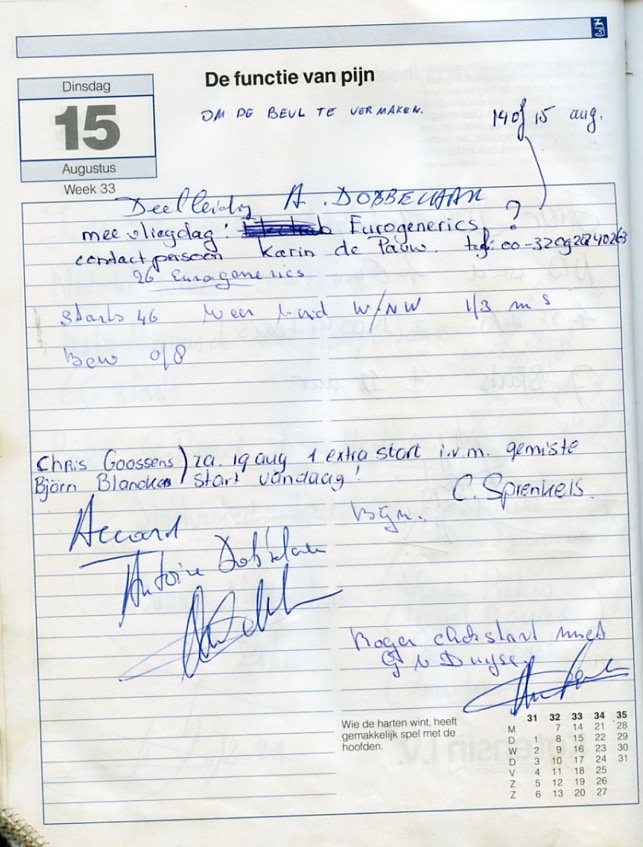 Dinsdag
15
Augustus
Week 33
De functie van pijn
OM DE BEUL TE VERMAKEN.
14 of 15 aug.
A. DOBBELAAR
meevliegdag: Eurogenerics ?
contactpersoon Karin de Pauw. tel: 00-32092240263
26 Eurogenerics
Starts 46 Weer W/NW 1/3 m s
Bew 0/8
Chris Goossens ) za. 19 aug 1 extra start i.v.m. gemiste
Björn Blanckas ) start vandaag!
C. Sprenkels.
Accoord
Antoine Dobbelaar
Roger start
Wie de harten wint, heeft
gemakkelijk spel met de
hoofden.
31 32 33 34 35
M 7 14 21 28
D 1 8 15 22 29
W 2 9 16 23 30
D 3 10 17 24 31
V 4 11 18 25
Z 5 12 19 26
Z 6 13 20 27